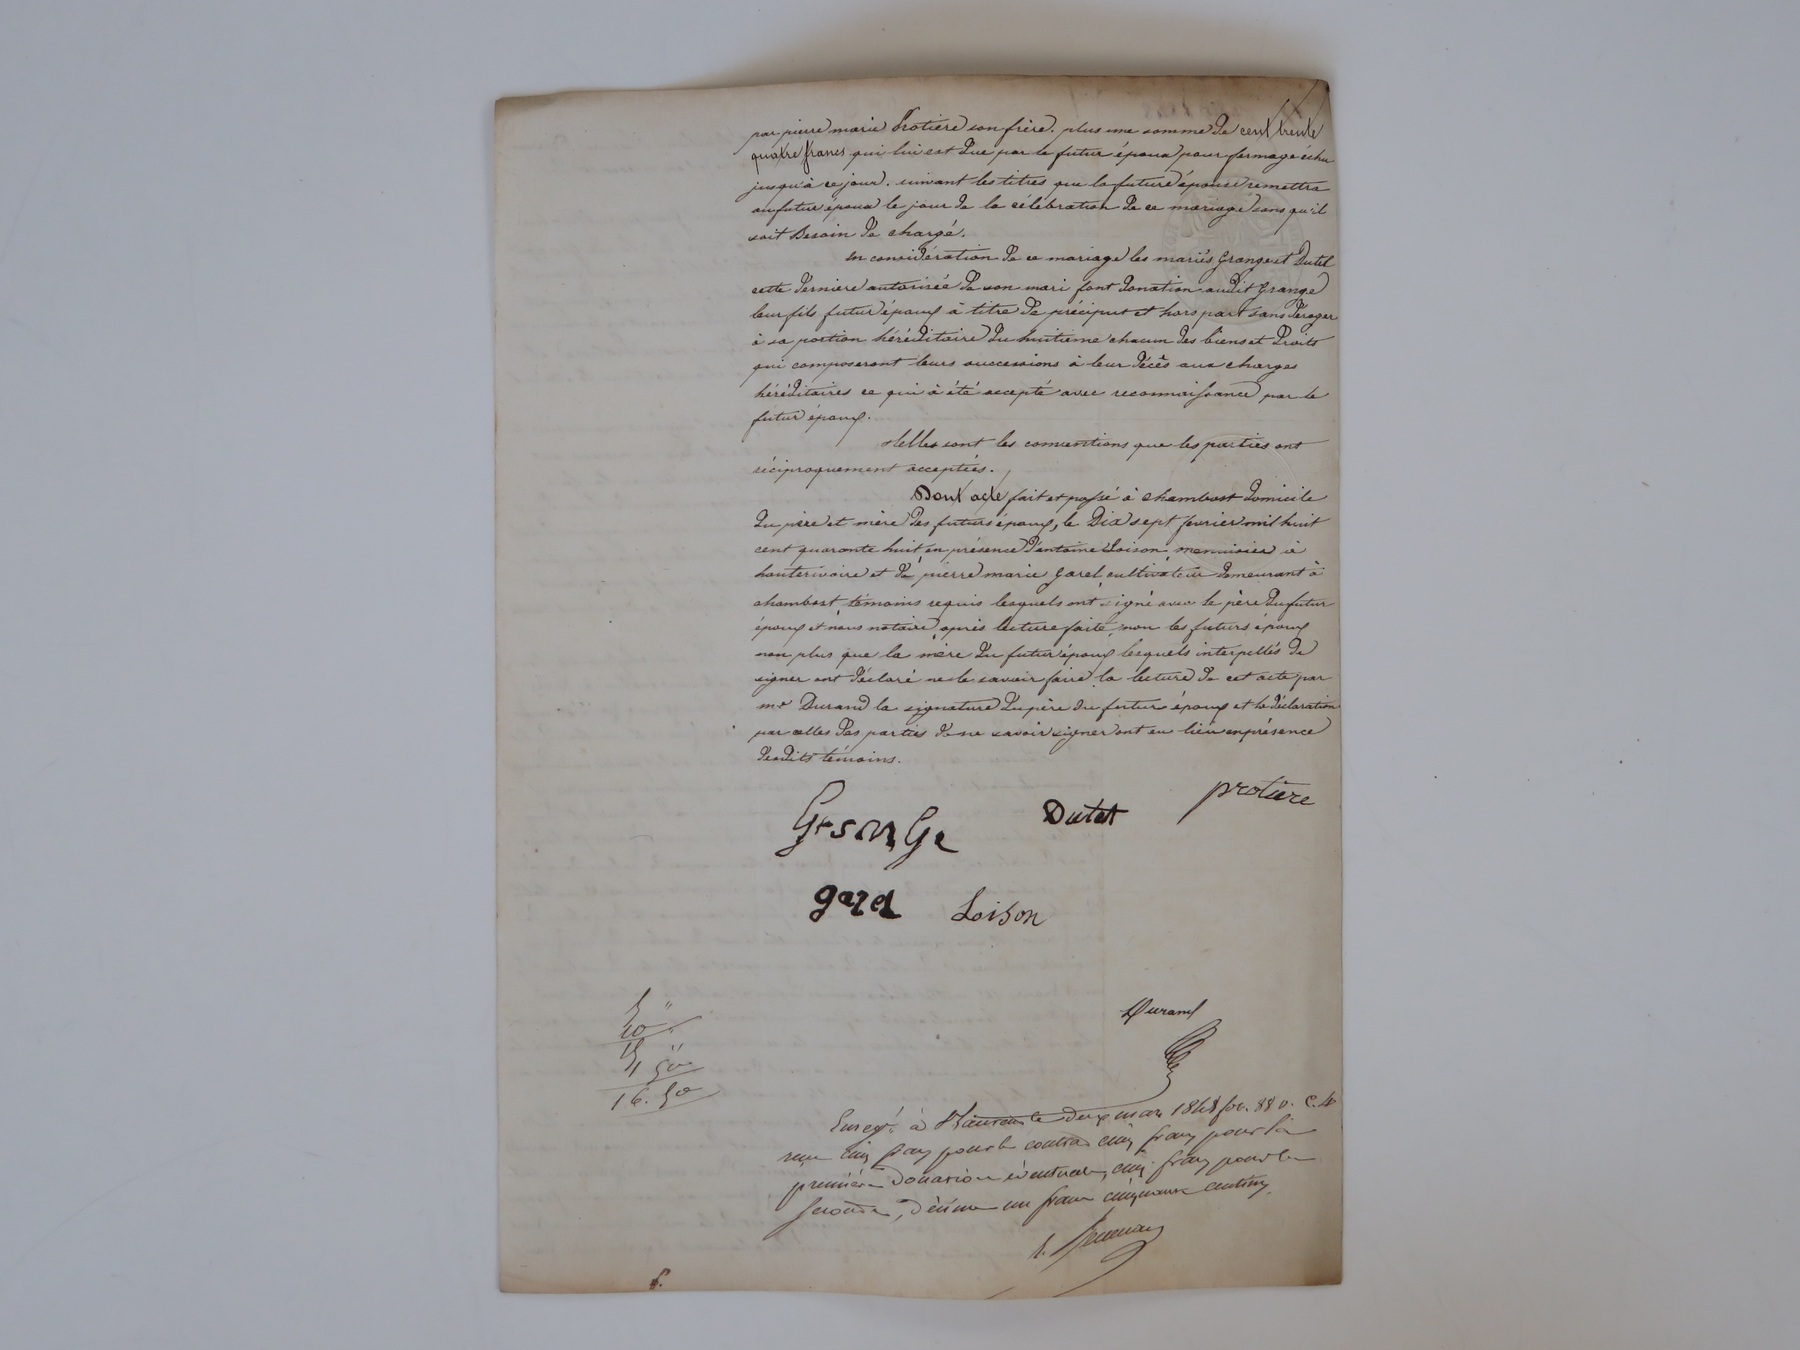 par pierre marie Protière son frère. plus une somme de cent trente
quatre francs qui lui est due par le futur époux pour fermage échu
jusqu'à ce jour. suivant les titres que la future épouse remettra
au futur époux le jour de la célébration de ce mariage sans qu'il
soit Besoin de chargé.
en considération de ce mariage les mariés Grange et Dutel
cette derniere autorisée de son mari font donation audit Grange
leur fils futur époux à titre de préciput et hors part sans déroger
à sa portion héréditaire du huitieme chacun des biens et droits
qui composeront leurs successions à leur décès aux charges
héréditaires ce qui à été accepté avec reconnaissance par le
futur époux.
telles sont les conventions que les parties ont
réciproquement acceptées.
Dont acte fait et passé à chambost domicile
du père et mère des futurs époux, le Dix sept fevrier mil huit
cent quarante huit, en présence d'antoine Loison, menuisier à
hauterivoire et de pierre marie Garel, cultivateur demeurant à
chambost, témoins requis lesquels ont signé avec le père du futur
époux et nous notaire, après lecture faite, non les futurs époux
non plus que la mère du futur époux lesquels interpellés de
signer ont déclaré ne le savoir faire, la lecture de cet acte par
me Durand la signature du père du futur époux et la déclaration
par celles des parties de ne savoir signer ont eu lieu en présence
desdits témoins.
protière
Dutel
GrsnGe
garel Loison
Durand
5 "
10 "
15 "
1 50
16. 50
Enregé à le deux mars 1848 fo. 88 v. C. 4
reçu cinq francs pour le contrat cinq francs pour la
première donation éventuelle, cinq francs pour la
seconde, décime un franc cinquante centimes.